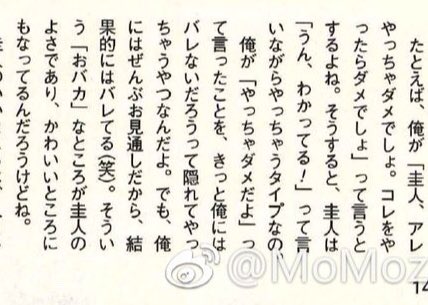 たとえば、俺が「圭人、アレ
やっちゃダメでしょ。コレをや
ったらダメでしょ」って言うと
するよね。そうすると、圭人は
「うん、わかってる！」って言
いながらやっちゃうタイプなの。
俺が「やっちゃダメだよ」っ
て言ったことを、きっと俺には
バレないだろうって隠れてやっ
ちゃうやつなんだよ。でも、俺
にはぜんぶお見通しだから、結
果的にはバレてる（笑）。そうい
う「おバカ」なところが圭人の
よさであり、かわいいところに
もなってるんだろうけどね。
14
@MoMoz